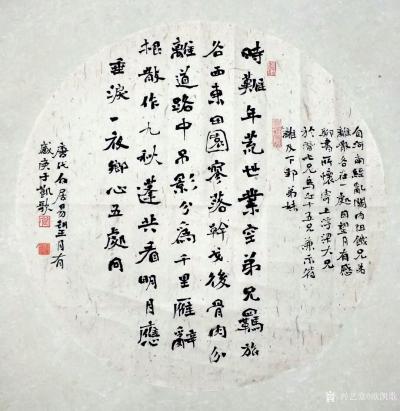 自河南經亂關內阻饑兄弟
離散各在一處因望月有感
聊書所懷寄上浮梁大兄
於潛七兄烏江十五兄兼示符
離及下邽弟妹
時難年荒世業空弟兄羈旅
各西東田園寥落幹戈後骨肉流
離道路中吊影分為千里雁辭
根散作九秋蓬共看明月應
垂淚一夜鄉心五處同
唐代白居易望月有
感庚子凱歌